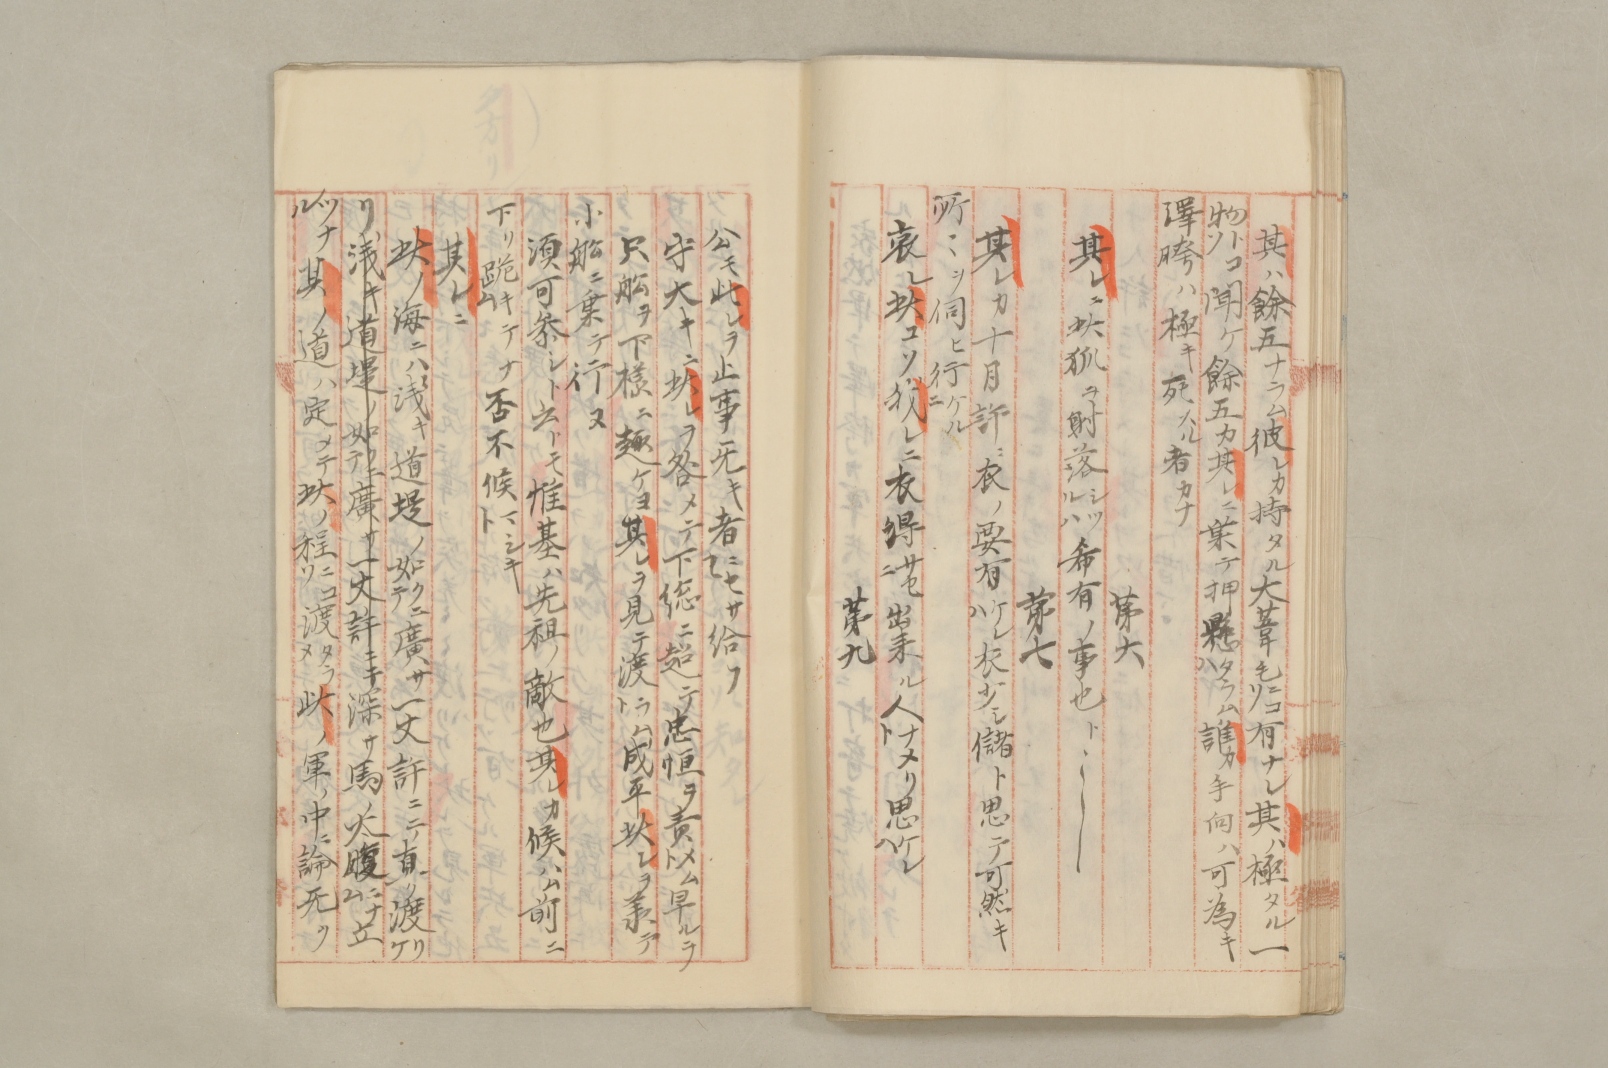 其ハ餘五ナラム彼レカ持タル大葦毛ニコソ有ナレ其ハ極タル一
物トコソ聞ケ餘五カ其レニ乗テ押懸タラムハ誰カ手向ハ可為キ
澤胯ハ極キ死シヌル者カナ
第六
其レニ此狐ヲ射落シツルハ希有ノ事也トーーー
第七
其レカ十月許ニ衣ノ要有ケレハ衣少シ儲ト思テ可然キ
所ミヽヲ伺ヒ行ケルニ
哀レ此コソハ我レニ衣得サセニ出来ル人ナメリト思ケレハ
第九
公モ此レヲ止事无キ者ニセサセ給フ
守大キニ此レヲ咎メテ下総ニ超テ忠恒ヲ責メムト早ルヲ
只船ヲ下様ニ趣ケヨ其レヲ見テ渡ラムト成平此レヲ業テ
小船ニ乗テ行ヌ
須可参シト云トモ惟基ハ先祖ノ敵也其レカ候ハム前ニ
下リ跪キテナム否不候マシキト
其レニ
此ノ海ニハ浅キ道堤ノ如クニテ廣サ一丈許ニテ直リ渡ケリ
リ浅キ道堤ノ如クニテ廣サ一丈許ニキ深サ馬ノ太腹ニナム立
ツナル其ノ道ハ定メテ此ノ程ニコソ渡タラメ此ノ軍ノ中ニ論无ク